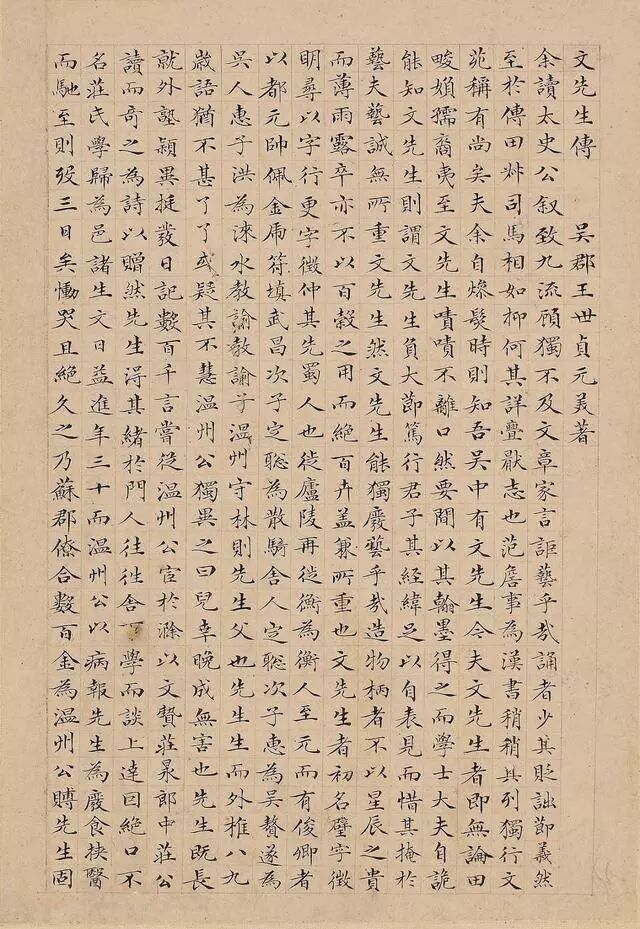 文先生傳 吳郡王世貞元美著
余讀太史公叙致九流顧獨不及文章家言詎藝乎哉誦者少其貶詘節義然
至於傳田叔司馬相如抑何其詳疊猒志也范詹事為漢書稍稍其列獨行文
苑稱有尚矣夫余自燥髮時則知吾吳中有文先生今夫文先生者即無論田
畯婦孺裔夷至文先生嘖嘖不離口然要間以其翰墨得之而學士大夫自詭
能知文先生則謂文先生負大節篤行君子其經緯足以自表見而惜其掩於
藝夫藝誠無所重文先生然文先生能獨廢藝乎哉造物柄者不以星辰之貴
而薄雨露卒亦不以百穀之用而絕百卉盖兼所重也文先生者初名璧字徵
明尋以字行更字徵仲其先蜀人也徙廬陵再徙衡為衡人至元而有俊卿者
以都元帥佩金虎符填武昌次子定聰為散騎舍人定聰次子惠為吳贅遂為
吳人惠子洪為淶水教諭教諭子溫州守林則先生父也先生生而外椎八九
歲語猶不甚了了或疑其不慧溫州公獨異之曰兒幸晚成無害也先生既長
就外塾穎異挺發日記數百千言嘗從溫州公宦於滁以文贄莊㫤郎中莊公
讀而奇之為詩以贈然先生得其緒於門人往往舍下學而談上達囙絕口不
名莊氏學歸為邑諸生文日益進年三十而溫州公以病報先生為廢食挾醫
而馳至則歿三日矣慟哭且絕久之乃蘇郡僚合數百金為溫州公賻先生固